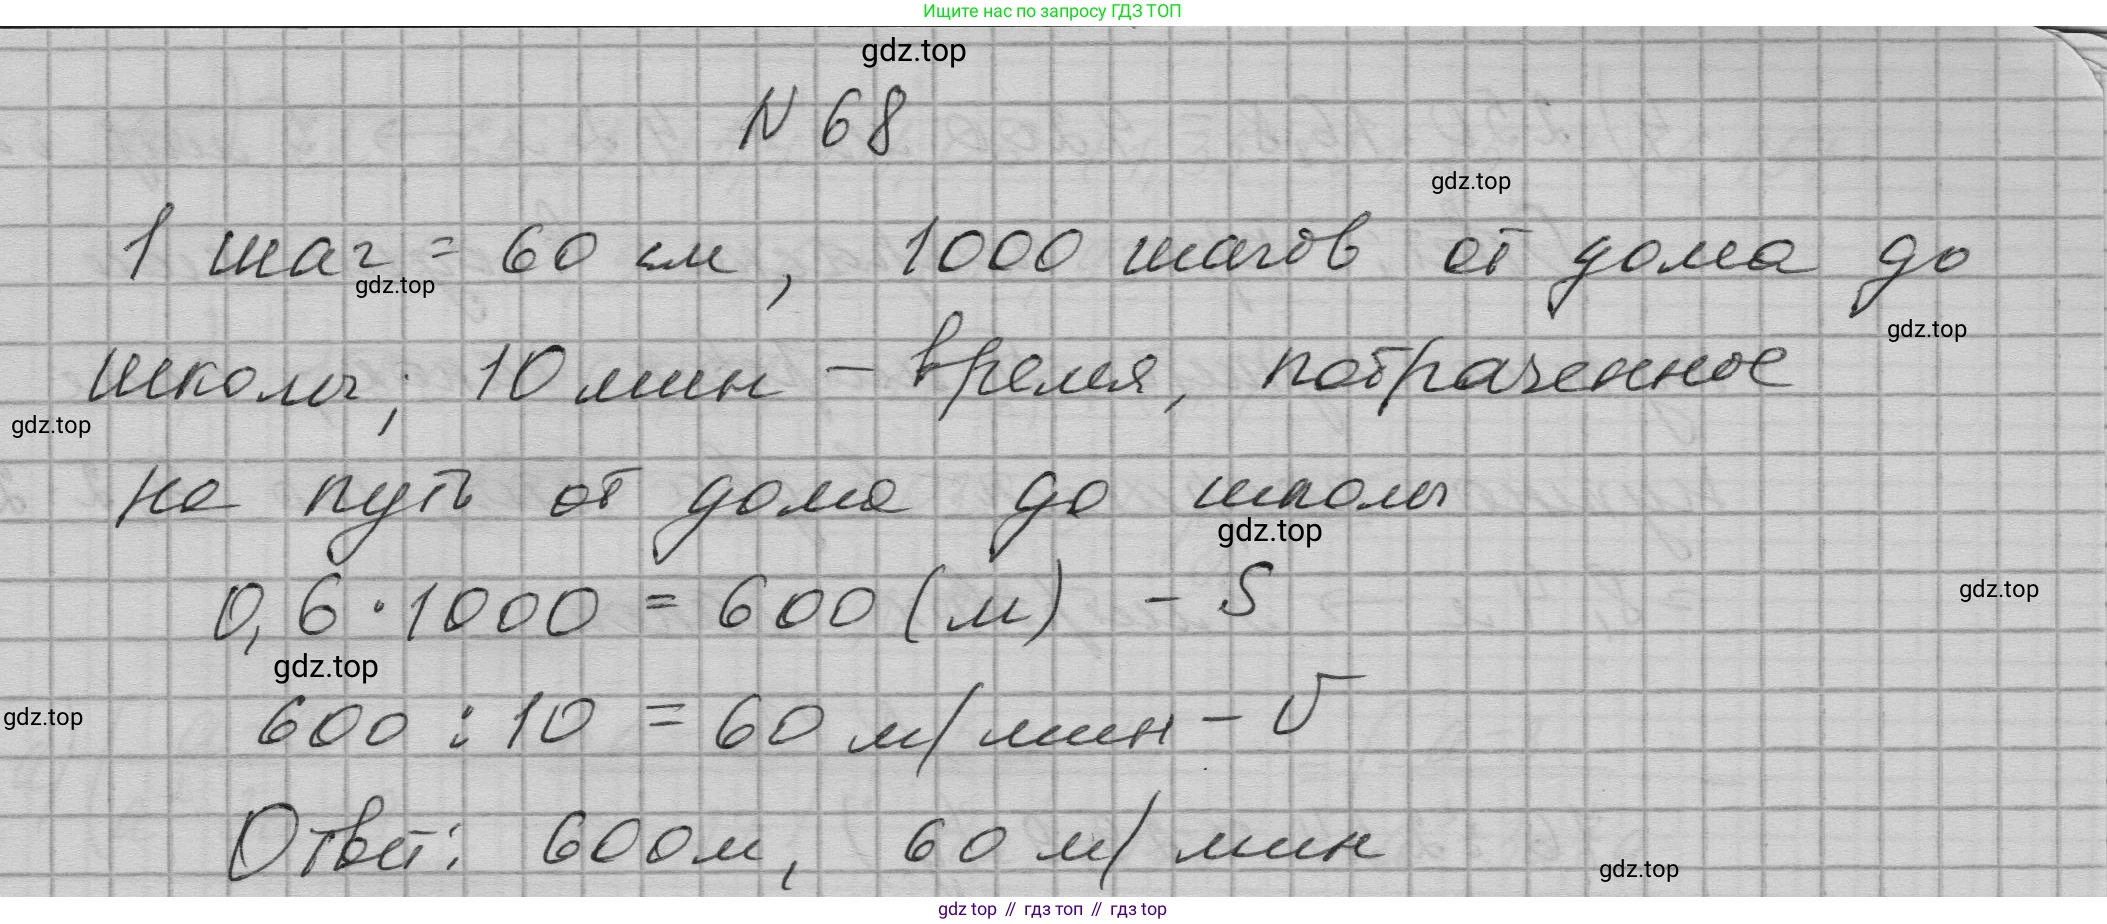 Ищите нас по запросу ГДЗ ТОП
gdz.top
N 68
gdz.top
1 шаг = 60 см, 1000 шагов от дома до
gdz.top
gdz.top
школы; 10 мин – время, потраченное
gdz.top
на путь от дома до школы
gdz.top
0,6 · 1000 = 600 (м) – S
gdz.top
gdz.top
600 : 10 = 60 м/мин – V
gdz.top
Ответ: 600м, 60 м/мин
gdz.top
gdz top // гдз топ // gdz top